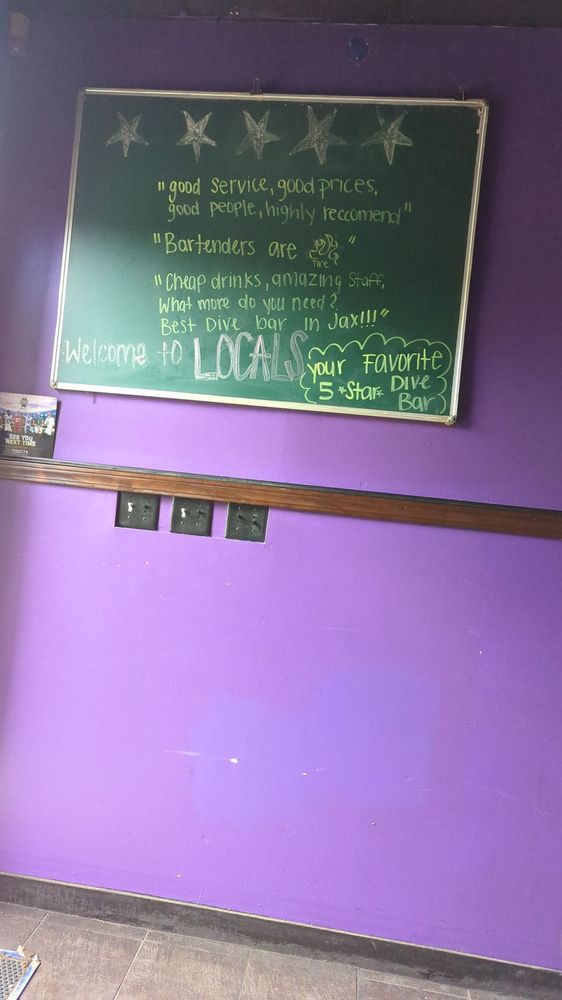 "good service, good prices,
good people, highly reccomend"
"Bartenders are fire"
"Cheap drinks, amazing staff,
What more do you need?
Best Dive bar in Jax!!!"
Welcome to LOCALS
your FAVORITE
5 *Star* DIVE
BAR
SEE YOU
NEXT TIME